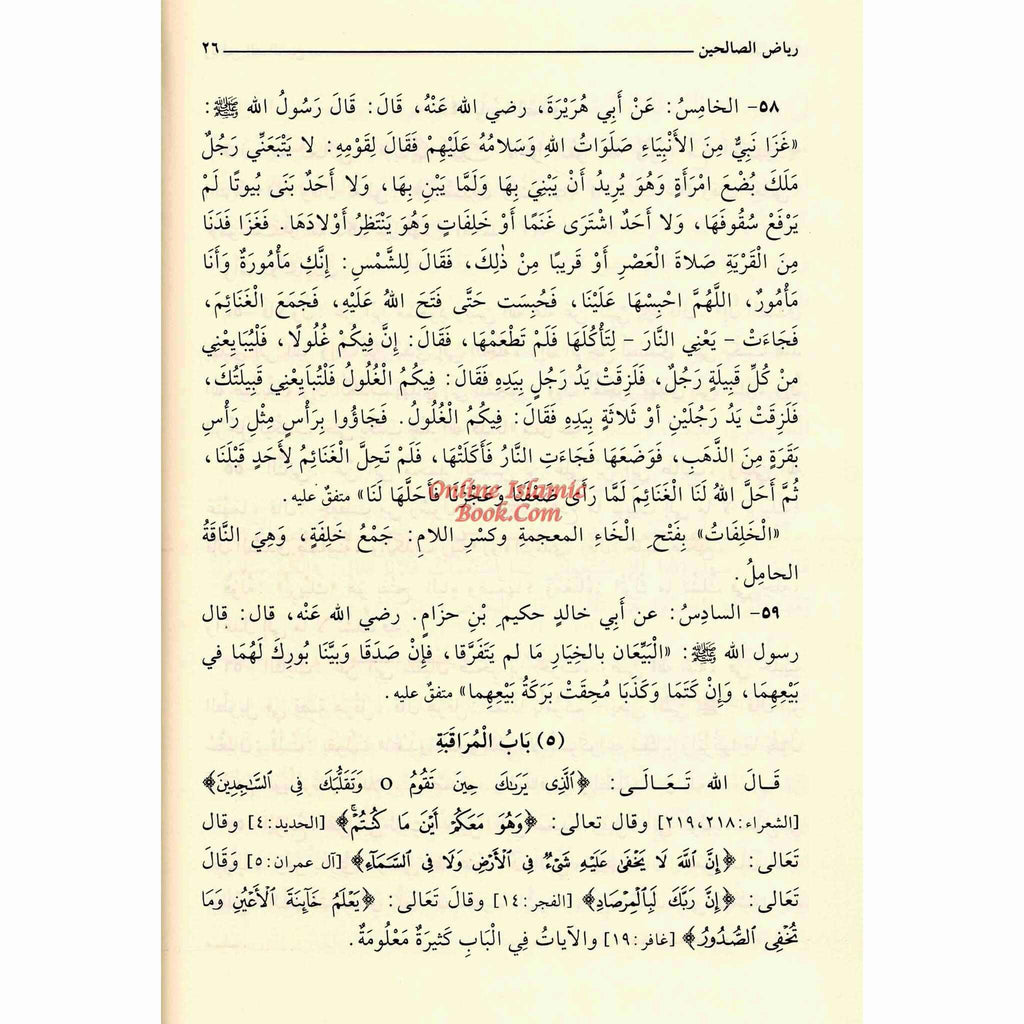 رياض الصالحين ٢٦
٥٨- الخامِسُ: عَنْ أَبِي هُرَيْرَةَ، رضي الله عَنْهُ، قَالَ: قَالَ رَسُولُ الله ﷺ:
«غَزَا نَبِيٌّ مِنَ الأَنْبِيَاءِ صَلَوَاتُ اللهِ وَسَلامُهُ عَلَيْهِمْ فَقَالَ لِقَوْمِهِ: لا يَتْبَعَنِّي رَجُلٌ
مَلَكَ بُضْعَ امْرَأَةٍ وَهُوَ يُرِيدُ أَنْ يَبْنِيَ بِهَا وَلَمَّا يَبْنِ بِهَا، وَلا أَحَدٌ بَنَى بُيوتًا لَمْ
يَرْفَعْ سُقُوفَهَا، وَلا أَحَدٌ اشْتَرَى غَنَمًا أَوْ خَلِفَاتٍ وَهُوَ يَنْتَظِرُ أَوْلادَهَا. فَغَزَا فَدَنَا
مِنَ الْقَرْيَةِ صَلاةَ الْعَصْرِ أَوْ قَرِيبًا مِنْ ذٰلِكَ، فَقَالَ لِلشَّمْسِ: إِنَّكِ مَأْمُورَةٌ وَأَنَا
مَأْمُورٌ، اللَّهُمَّ احْبِسْهَا عَلَيْنَا، فَحُبِسَت حَتَّى فَتَحَ اللهُ عَلَيْهِ، فَجَمَعَ الْغَنَائِمَ،
فَجَاءَتْ – يَعْنِي النَّارَ – لِتَأْكُلَهَا فَلَمْ تَطْعَمْهَا، فَقَالَ: إِنَّ فِيكُمْ غُلُولًا، فَلْيُبَايِعْنِي
مِنْ كُلِّ قَبِيلَةٍ رَجُلٌ، فَلَزِقَتْ يَدُ رَجُلٍ بِيَدِهِ فَقَالَ: فِيكُمُ الْغُلُولُ فَلْتُبَايِعْنِي قَبِيلَتُكَ،
فَلَزِقَتْ يَدُ رَجُلَيْنِ أَوْ ثَلاثَةٍ بِيَدِهِ فَقَالَ: فِيكُمُ الْغُلُولُ. فَجَاؤُوا بِرَأْسٍ مِثْلِ رَأْسِ
بَقَرَةٍ مِنَ الذَّهَبِ، فَوَضَعَهَا فَجَاءَتِ النَّارُ فَأَكَلَتْهَا، فَلَمْ تَحِلَّ الْغَنَائِمُ لِأَحَدٍ قَبْلَنَا،
ثُمَّ أَحَلَّ اللهُ لَنَا الْغَنَائِمَ لَمَّا رَأَى ضَعْفَنَا وَعَجْزَنَا فَأَحَلَّهَا لَنَا» متفقٌ عليه.
Online Islamic
Book.Com
«الْخَلِفَاتُ» بِفَتْحِ الْخَاءِ المعجمةِ وكَسْرِ اللامِ: جَمْعُ خَلِفَةٍ، وَهِيَ النَّاقَةُ
الحامِلُ.
٥٩- السادِسُ: عن أَبِي خالدٍ حكيمِ بْنِ حزَامٍ. رضي الله عَنْه، قال: قال
رسول الله ﷺ: «الْبَيِّعَان بالخِيَارِ مَا لم يَتَفَرَّقا، فَإِنْ صَدَقَا وَبَيَّنَا بُورِكَ لَهُمَا في
بَيْعِهِمَا، وَإِنْ كَتَمَا وَكَذَبَا مُحِقَتْ بَرَكَةُ بَيْعِهِما» متفقٌ عليه.
(٥) بَابُ الْمُرَاقَبَةِ
قَـالَ الله تَـعَـالَـى: ﴿ٱلَّذِى يَرَىٰكَ حِينَ تَقُومُ ٥ وَتَقَلُّبَكَ فِى ٱلسَّـٰجِدِينَ﴾
[الشعراء:٢١٨، ٢١٩] وقال تعالى: ﴿وَهُوَ مَعَكُمْ أَيْنَ مَا كُنتُمْ﴾ [الحديد:٤] وقال
تَعَالى: ﴿إِنَّ ٱللَّهَ لَا يَخْفَىٰ عَلَيْهِ شَىْءٌ فِى ٱلْأَرْضِ وَلَا فِى ٱلسَّمَآءِ﴾ [آل عمران:٥] وَقَالَ
تَعَالى: ﴿إِنَّ رَبَّكَ لَبِٱلْمِرْصَادِ﴾ [الفجر:١٤] وقالَ تَعَالى: ﴿يَعْلَمُ خَآئِنَةَ ٱلْأَعْيُنِ وَمَا
تُخْفِى ٱلصُّدُورُ﴾ [غافر:١٩] والآياتُ فِي الْبَابِ كَثيرَةٌ مَعْلُومَةٌ.